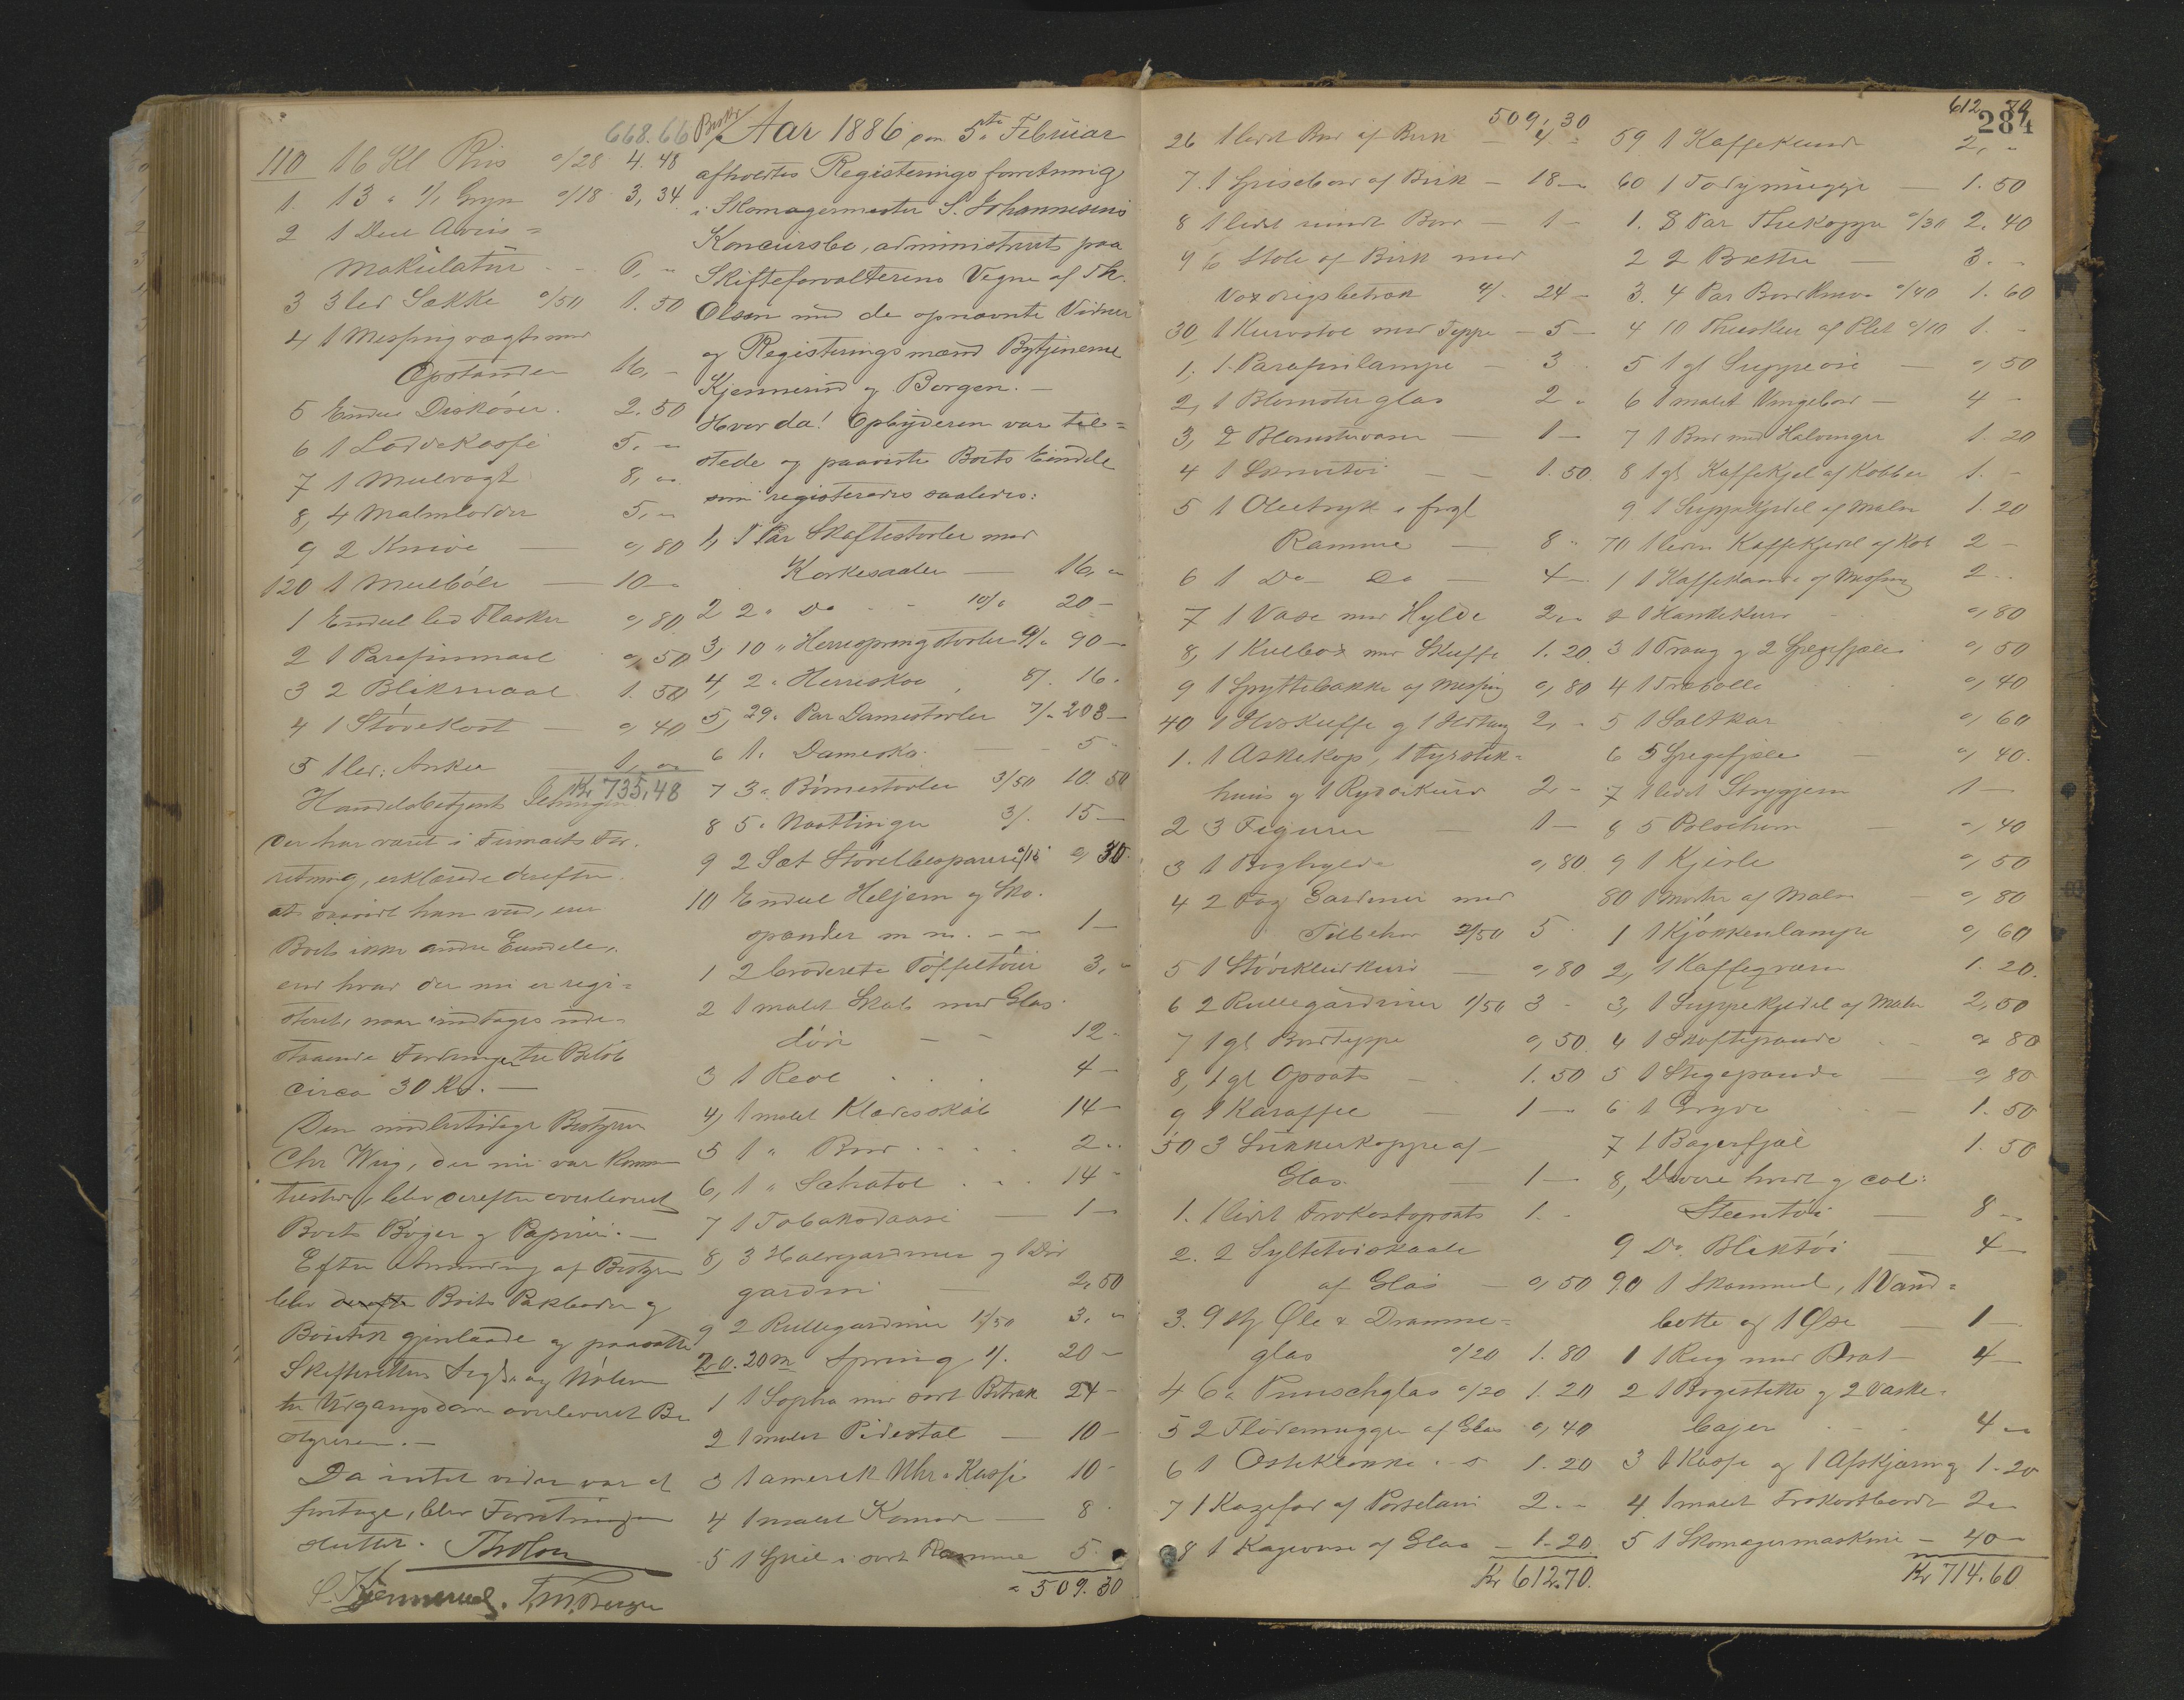 668.66
110 16 Kl Riis a/28 4.48
1. 13 " 1/1 Gryn a/18 3,34
2 1 Deel Avis=
Makülatür - - 6, "
3 3 led Sække a/50 1.50
4 1 Messingvægt med
Opstander 16, -
5 Endeel Diskósser. 2.50
6 1 Loddekasse 5. "
7 1 Meelvægt 8, "
8, 4 Malmlodder 5, "
9 2 Knive — 0,80
120 1 Meelböle — 10 "
1 Endeel led Flasker 0,80
2 1 Parafinmaal 0,50
3 2 Blikmaal 1.50
4 1 Stóvekost — 0,40
5 1 led: Anker 1, "
Kr 735,48
Handelsbetjent
der har været i Firmaets For-
retning, erklærede derefter
at saavidt han ved, eier
Boets ikke andre Eiendele,
end hvad der nu er regi=
streret, naar undtages ude-
staaende Fordringer til Belób
circa 30 Kr. —
Den midlertidige Bestyrer
Chr Wiig, der nu var kommen
tilstede, blev derefter overleveret
Boets Bóger og Papirer. —
Efter Anmodning af Bestyren
blev derefter Boets Pakboder og
Boutik gjenlaade og paasatte
Skifterettens Segl, og Nólen
til Udgangsdøren overleveret Be
styreren. —
Da intet videre var at
foretage, blev Forretningen
sluttet. Th Olsen
C. Kjennerud. T. M. Borgen
Aar 1886 den 5te Februar
afholdtes Registeringsforretning
i Skomagermester S. Johannesens
Koncürsbo, administreret paa
Skifteforvalterens Vegne af Th.
Olsen med de opnævnte Vidner
og Registeringsmænd Bytjenerne
Kjennerud og Borgen. —
Hvor da! Opbyderen var til=
stede og paaviste Boets Eiendele
som registeredes saaledes:
1, 1 Par Skaftestøvler med
Korkesaaler — 16, "
2 2 " Do - - 10/" 20 -
3, 10 " Herrespringstøvler 9/" 90 —
4, 2 " Herresko 8/. 16 "
5, 29 " Par Damestøvler 7/" 203 —
6 1 " Damesko — - 5 "
7 3 " Börnestøvler 3/50 10.50
8 5 " Nastlinger 3/. 15 —
9 2 Sæt Stóvelbesparere a/15 0,30
10 Endeel Heljern og Sko-
spænder m m. - — 1 —
1 2 broderete Tóffeltóier 3, "
2 1 malet Skab med Glas-
dör — - 12 -
3 1 Reol . . . 4 —
4, 1 malet Klædesskab 14 —
5 1 " Bord . . . . 2 "
6, 1 " Salratol . . . 14 -
7 1 Tobaksdaase — 1 —
8, 3 Halvgardiner og 1 Dör
gardin — 2,50
9 2 Rullegardiner 1/50 3. "
20. 20 m Spring 1/. 20 —
1 1 Sopha med sort Betræk 24 -
2 1 malet Pidestal — 10 -
3 1 amerik Uhr i Kasse 10 -
4 1 malet Komode — 8 -
5 1 Speil i sort Ramme 5. "
" 509.30
509, 30
26 1 lidet Bord af Birk — 4 "
7. 1 Spisebord af Birk — 18 —
8 1 lidet rundt Bord — 1 -
9 6 Stole af Birk med
Voxdugsbetræk 4/. 24 —
30, 1 Kurvstol med Teppe — 5 —
1, 1 Parafinlampe — 3
2, 1 Blomsterglas 2 "
3, 2 Blomstervaser — 1 —
4 1 — - 1.50
5 1 Olietryk i forgl
Ramme — 8 "
6 1 Do Do — 4 —
7 1 Vase med Hylde 2 "
8, 1 Kulbox med Skuffe 1.20
9 1 Spyttebakke af Messing 0,80
40 1 Ildskuffe og 1 Ildtang 2, -
1. 1 Askekop, 1 Fyrstik=
huus og 1 Rydsekurv 2 -
2 3 Figurer — 1 —
3 1 Boghylde 0,80
4 2 Fag Gardiner med
Tilbehør 2/50 5 -
5 1 Stóvekludkurv — 0,80
6 2 Rullegardiner 1/50 3 -
7 1 gl Bordteppe 0,50
8, 1 gl Opsats — 1.50
9 1 Karaffel — 1 —
50 3 Sukkerkopper af
Glas. — 1 —
1. 1 lidet Frokostopsats 1. -
2. 2 Syltetóiskaale
af Glas — 0,50
3. 9 st Øle & Dramme=
glas a/20 1.80
4 6 " Punschglas a/20 1.20
5 2 Flódemugger af Glas 0,40
6 1 Osteklokke " " 1.20
7 1 Kagefad af Porselain 2 "
8 1 Kagevase af Glas — 1.20
Kr 612.70.
612 70
284
59 1 Kaffekande 2, "
60 1 Todymugge — 1.50
1. 8 Par Thekopper a/30 2.40
2 2 Brætter — 3. -
3. 4 Par Bordknive a/40 1.60
4 10 Theskeer af Plet a/10 1. -
5 1 gl Suppeøse — 0,50
6 1 malet Vingebord — 4 -
7 1 Bord med Halvinger 1.20
8 1 gl Kaffekjel af Kobber 1. -
9 1 Suppekjedel af Malm 1.20
70 1 liden Kaffekjedel af Kob 2 -
1 1 Kaffekande af Messing 2 -
2 1 Hankekurv 0,80
3 1 Traug og 2 Spegefjæle 0,50
4 1 Træbolle . . . 0,40
5 1 Saltkar 0,60
6 5 Spegefjæle — 0,40.
7 1 lidet Strygjern 1 —
8 5 — 0,40
9 1 Kjevle 0,50
80 1 Morter af Malm — 0,80
1 1 Kjókkenlampe 0,60
2, 1 Kaffeqværn 1.20.
3, 1 Suppekjedel af Malm 2,50
4 1 Skaftepande - 0,80
5 1 Stegepande — 0,80
6 1 Gryde — 1.50
7 1 Bagerfjæl 1.50
8, Diverse hvidt og col:
Steentói — 8 —
9 Do Bliktói — 4 —
90 1 Skammel, 1 Vand=
bötte og 1 Øse — 1 —
1 1 Rug med Brat — 4 —
2 1 Bryestette og 2 Vaske-
baljer . . 4 "
3 1 Kasse og 1 Afskjæring 1.20
4. 1 malet Frokostbord 2 "
5 1 Skomagermaskine — 40 —
Kr 714.60